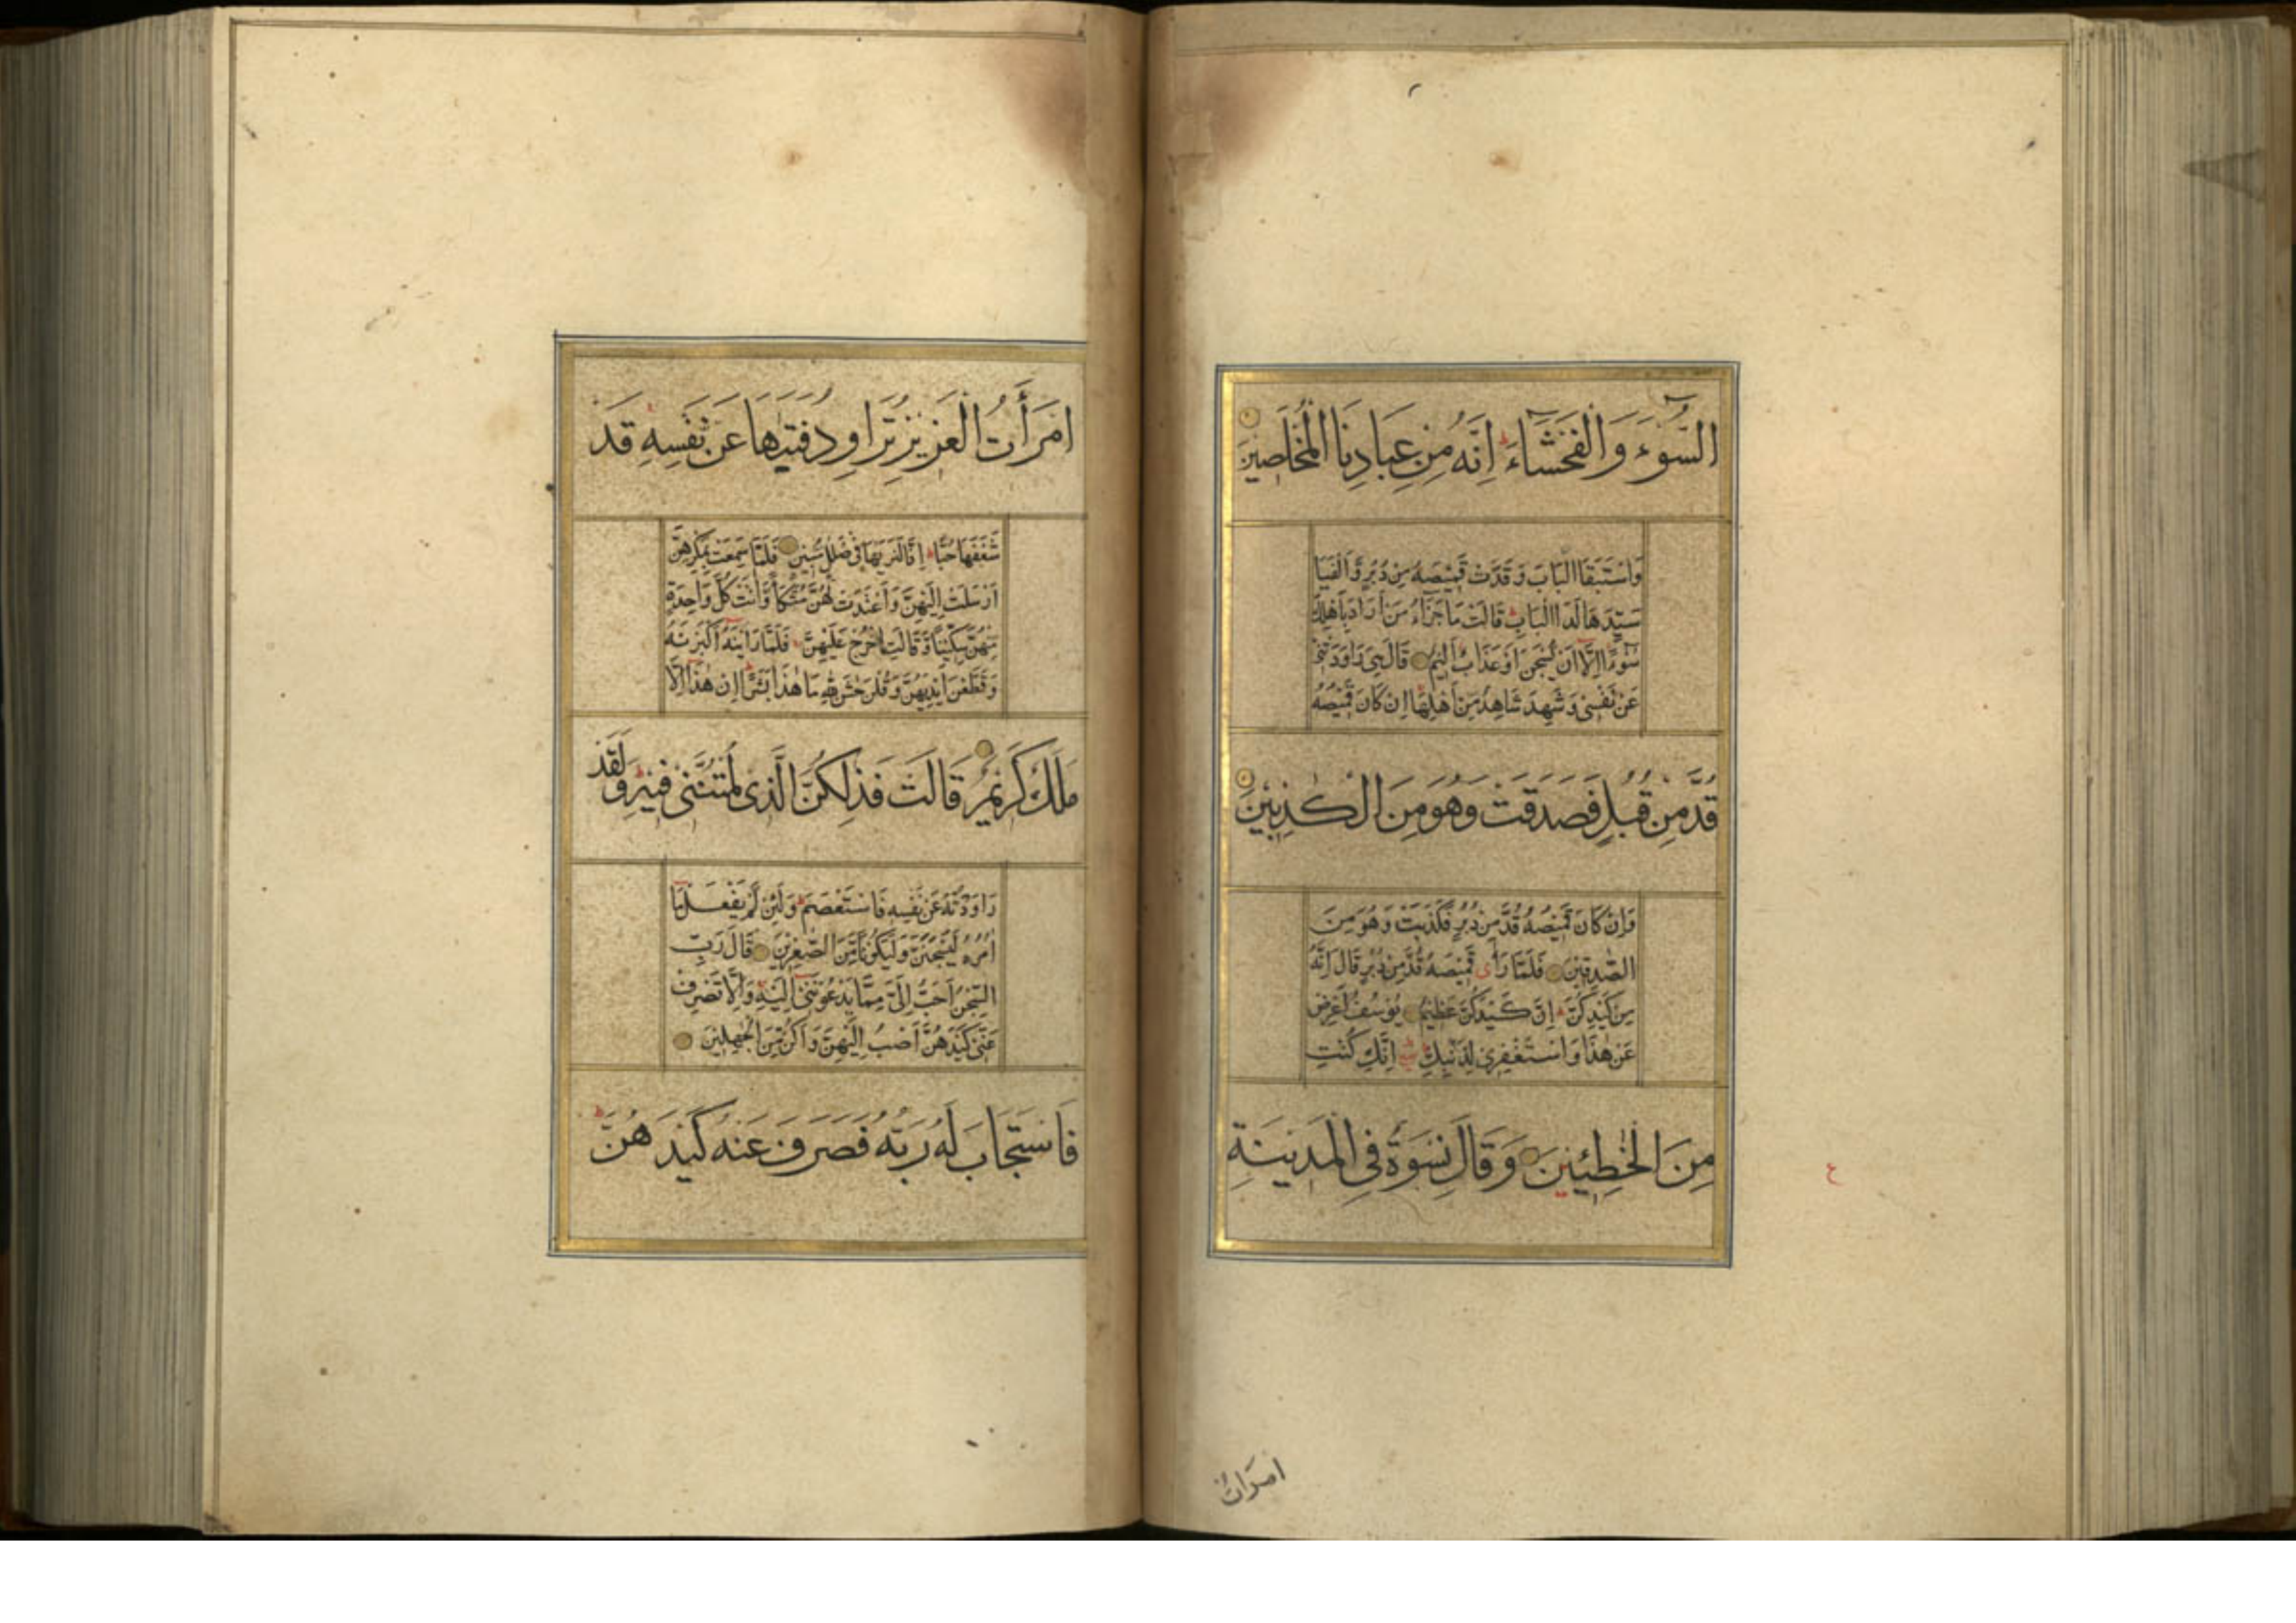 السُّوءَ وَالْفَحْشَاءَ اِنَّهُ مِنْ عِبَادِنَا الْمُخْلَصِينَ
وَاسْتَبَقَا الْبَابَ وَقَدَّتْ قَمِيصَهُ مِنْ دُبُرٍ وَاَلْفَيَا
سَيِّدَهَا لَدَا الْبَابِ قَالَتْ مَا جَزَاءُ مَنْ اَرَادَ بِاَهْلِكَ
سُوءًا اِلَّا اَنْ يُسْجَنَ اَوْ عَذَابٌ اَلِيمٌ قَالَ هِىَ رَاوَدَتْنِى
عَنْ نَفْسِى وَشَهِدَ شَاهِدٌ مِنْ اَهْلِهَا اِنْ كَانَ قَمِيصُهُ
قُدَّ مِنْ قُبُلٍ فَصَدَقَتْ وَهُوَ مِنَ الْكٰذِبِينَ
وَاِنْ كَانَ قَمِيصُهُ قُدَّ مِنْ دُبُرٍ فَكَذَبَتْ وَهُوَ مِنَ
الصّٰدِقِينَ فَلَمَّا رَأى قَمِيصَهُ قُدَّ مِنْ دُبُرٍ قَالَ اِنَّهُ
مِنْ كَيْدِكُنَّ اِنَّ كَيْدَكُنَّ عَظِيمٌ يُوسُفُ اَعْرِضْ
عَنْ هٰذَا وَاسْتَغْفِرِى لِذَنْبِكِ اِنَّكِ كُنْتِ
مِنَ الْخٰطِئِينَ وَقَالَ نِسْوَةٌ فِى الْمَدِينَةِ
ع
امرَاتُ
امْرَأَتُ الْعَزِيزِ تُرَاوِدُ فَتٰيهَا عَنْ نَفْسِهِ قَدْ
شَغَفَهَا حُبًّا اِنَّا لَنَرٰيهَا فِى ضَلٰلٍ مُبِينٍ فَلَمَّا سَمِعَتْ بِمَكْرِهِنَّ
اَرْسَلَتْ اِلَيْهِنَّ وَاَعْتَدَتْ لَهُنَّ مُتَّكَأً وَاٰتَتْ كُلَّ وَاحِدَةٍ
مِنْهُنَّ سِكِّينًا وَقَالَتِ اخْرُجْ عَلَيْهِنَّ فَلَمَّا رَاَيْنَهُ اَكْبَرْنَهُ
وَقَطَّعْنَ اَيْدِيَهُنَّ وَقُلْنَ حٰشَ لِلّٰهِ مَا هٰذَا بَشَرًا اِنْ هٰذَا اِلَّا
مَلَكٌ كَرِيمٌ قَالَتْ فَذٰلِكُنَّ الَّذِى لُمْتُنَّنِى فِيهِ وَلَقَدْ
رَاوَدْتُهُ عَنْ نَفْسِهِ فَاسْتَعْصَمَ وَلَئِنْ لَمْ يَفْعَلْ مَا
اٰمُرُهُ لَيُسْجَنَنَّ وَلَيَكُونًا مِنَ الصّٰغِرِينَ قَالَ رَبِّ
السِّجْنُ اَحَبُّ اِلَىَّ مِمَّا يَدْعُونَنِى اِلَيْهِ وَاِلَّا تَصْرِفْ
عَنِّى كَيْدَهُنَّ اَصْبُ اِلَيْهِنَّ وَاَكُنْ مِنَ الْجٰهِلِينَ
فَاسْتَجَابَ لَهُ رَبُّهُ فَصَرَفَ عَنْهُ كَيْدَهُنَّ